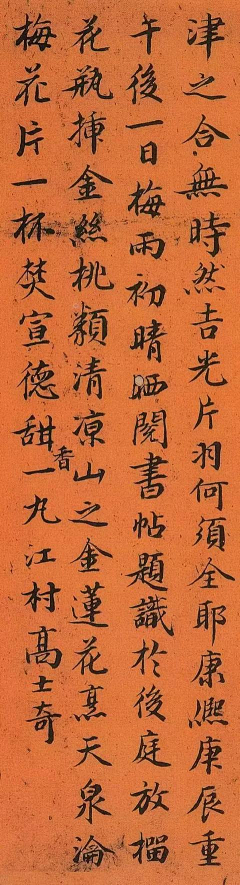 津之合無時然吉光片羽何須全耶康熙庚辰重
午後一日梅雨初晴晒閱書帖題識於後庭放榴
花瓶揷金絲桃纇清涼山之金蓮花烹天泉瀹
梅花片一杯焚宣德甜香一丸江村髙士奇